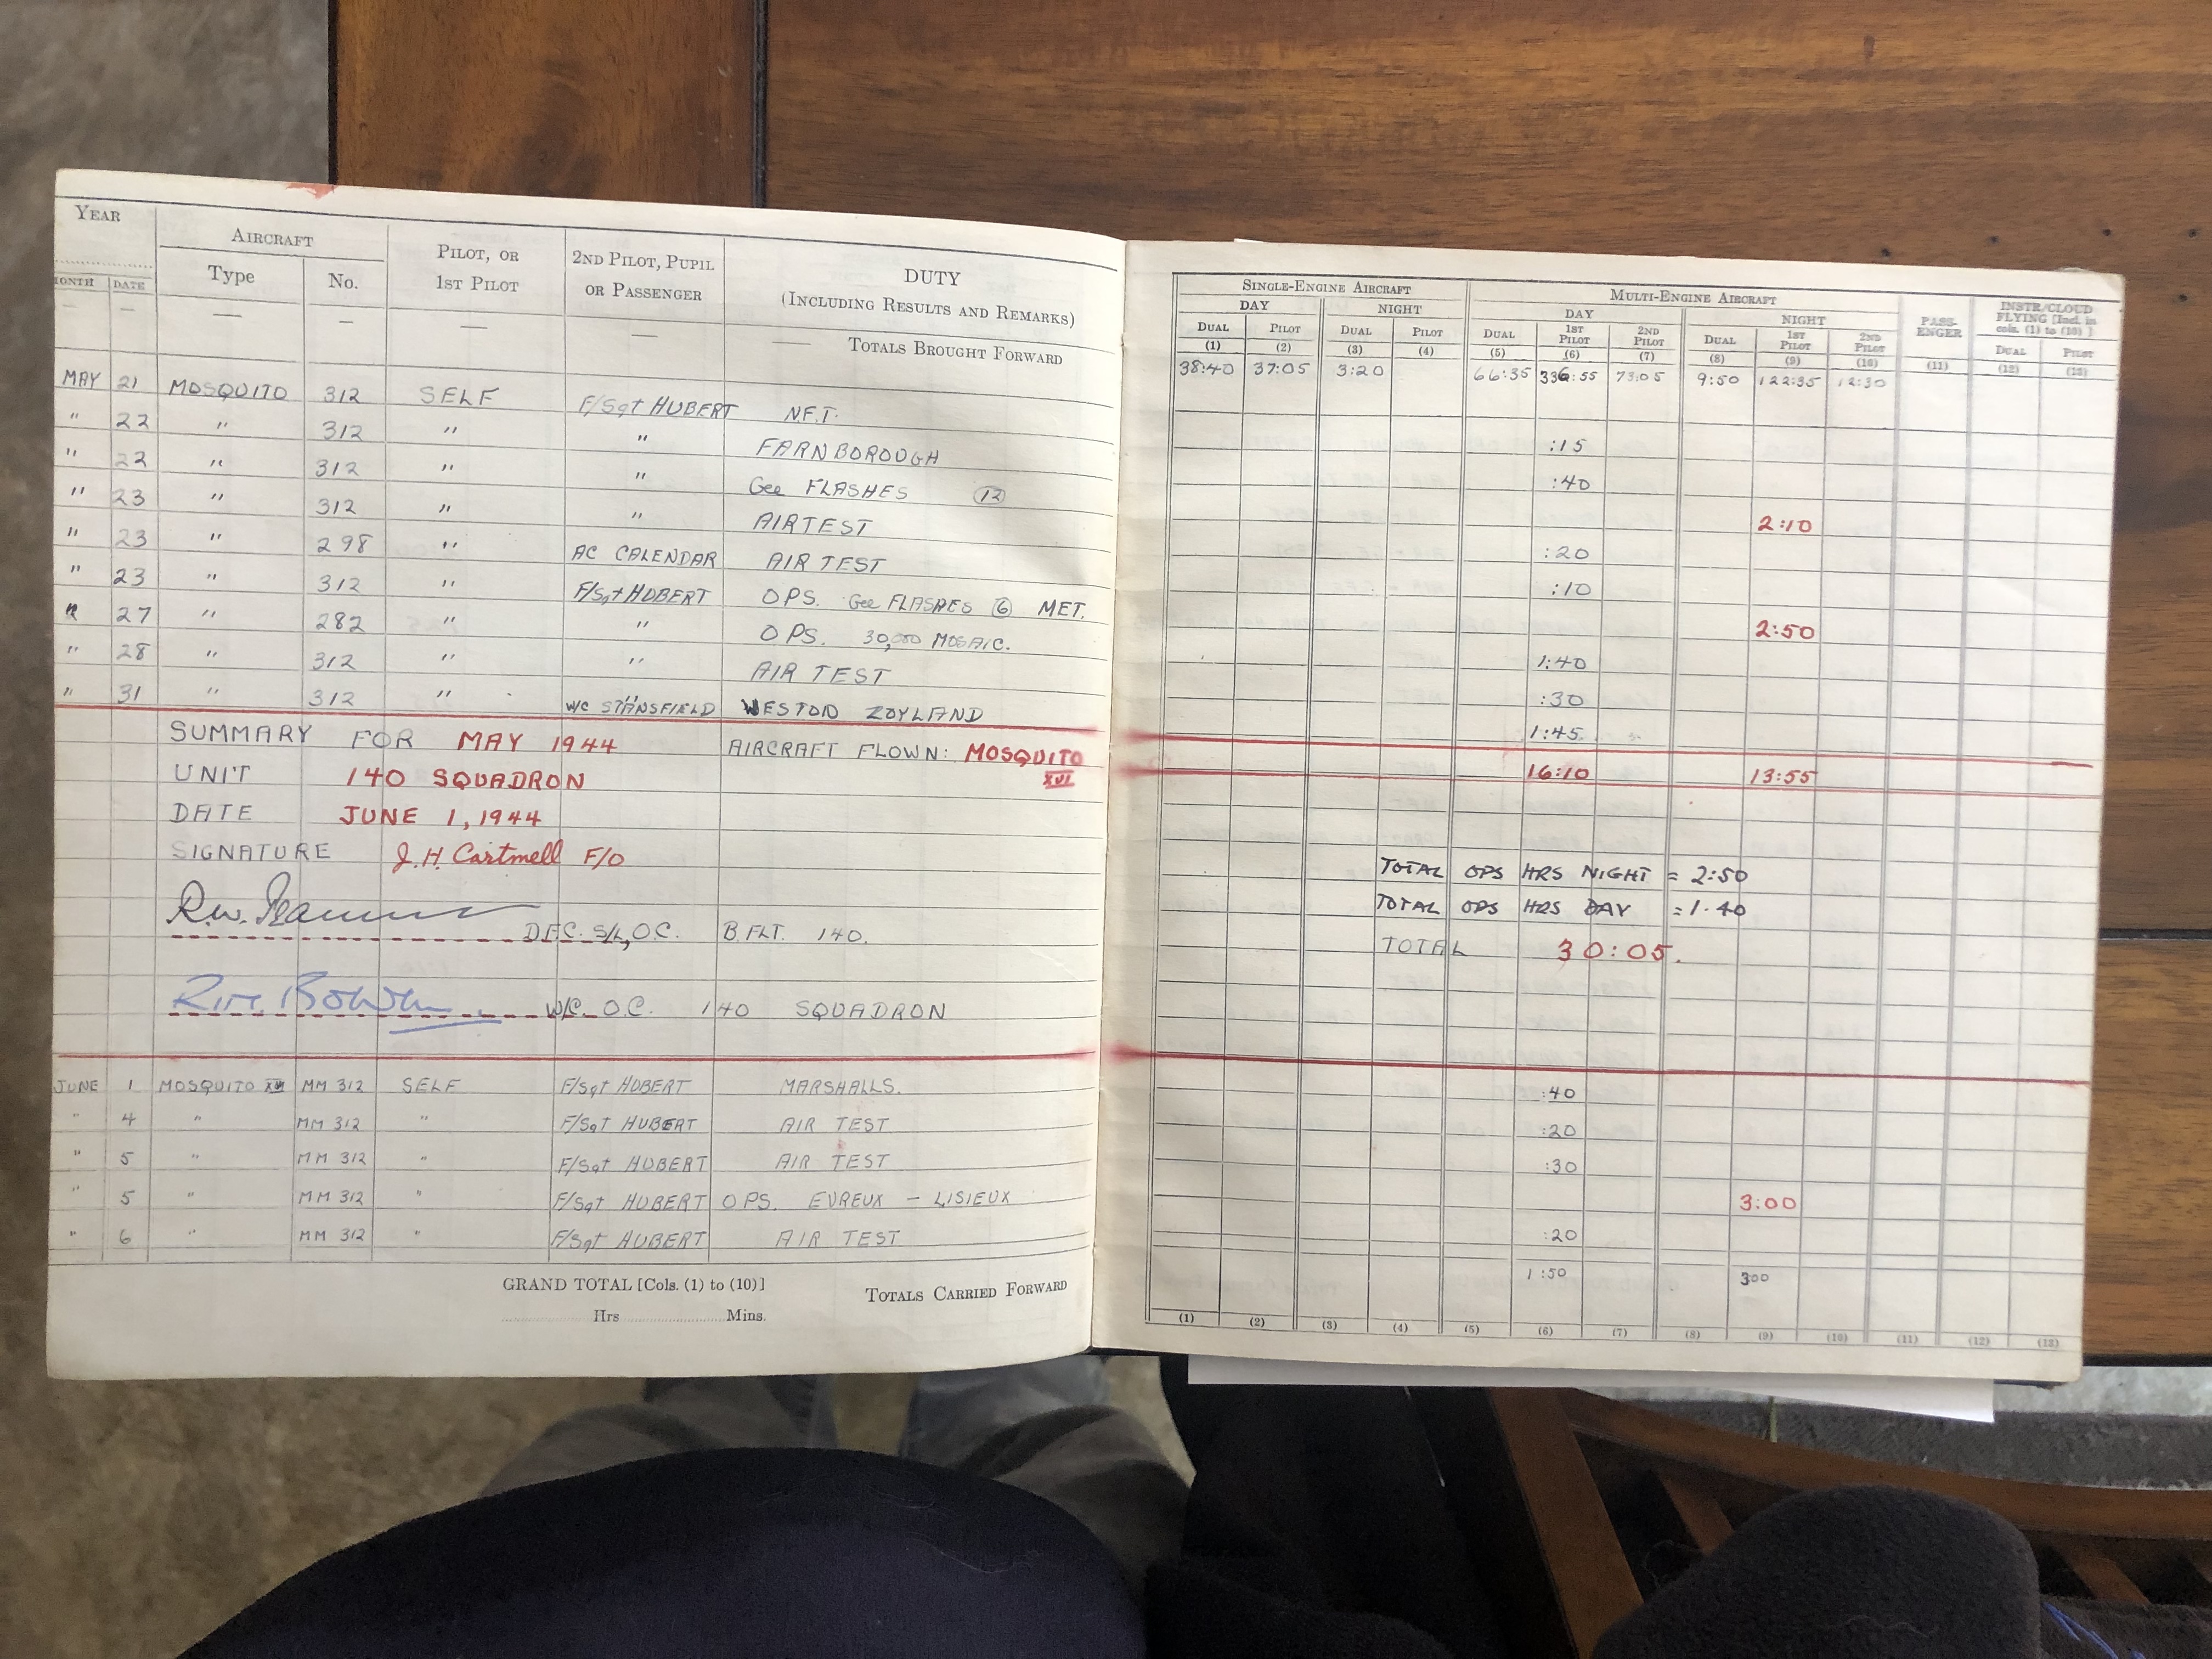 YEAR
AIRCRAFT
PILOT, OR 1ST PILOT
2ND PILOT, PUPIL OR PASSENGER
DUTY (INCLUDING RESULTS AND REMARKS)
MONTH DATE Type No.
TOTALS BROUGHT FORWARD
MAY 21 MOSQUITO 312 SELF F/Sgt HUBERT N.F.T.
" 22 " 312 " " FARNBOROUGH
" 22 " 312 " " Gee FLASHES 12
" 23 " 312 " " AIRTEST
" 23 " 298 " AC CALENDAR AIR TEST
" 23 " 312 " F/Sgt HUBERT OPS. Gee FLASHES 6 MET.
" 27 " 282 " " OPS. 30,000 MOSAIC.
" 28 " 312 " " AIR TEST
" 31 " 312 " W/C STANSFIELD WESTON ZOYLAND
SUMMARY FOR MAY 1944 AIRCRAFT FLOWN: MOSQUITO XVI
UNIT 140 SQUADRON
DATE JUNE 1, 1944
SIGNATURE J.H. Cartmell F/O
DFC. S/L, O.C. B FLT. 140.
W/C. O.C. 140 SQUADRON
JUNE 1 MOSQUITO XVI MM 312 SELF F/Sgt HUBERT MARSHALLS.
" 4 " MM 312 " F/Sgt HUBERT AIR TEST
" 5 " MM 312 " F/Sgt HUBERT AIR TEST
" 5 " MM 312 " F/Sgt HUBERT OPS. EVREUX - LISIEUX
" 6 " MM 312 " F/Sgt HUBERT AIR TEST
GRAND TOTAL [Cols. (1) to (10)]
Hrs Mins.
TOTALS CARRIED FORWARD
SINGLE-ENGINE AIRCRAFT MULTI-ENGINE AIRCRAFT PASS-ENGER INSTR/CLOUD FLYING [Incl. in cols. (1) to (10)]
DAY NIGHT DAY NIGHT
DUAL PILOT DUAL PILOT DUAL 1ST PILOT 2ND PILOT DUAL 1ST PILOT 2ND PILOT DUAL PILOT
(1) (2) (3) (4) (5) (6) (7) (8) (9) (10) (11) (12) (13)
38:40 37:05 3:20 66:35 336:55 73:05 9:50 122:35 12:30
:15
:40
2:10
:20
:10
2:50
1:40
:30
1:45
16:10 13:55
TOTAL OPS HRS NIGHT = 2:50
TOTAL OPS HRS DAY = 1.40
TOTAL 30:05.
:40
:20
:30
3:00
:20
1:50 300
(1) (2) (3) (4) (5) (6) (7) (8) (9) (10) (11) (12) (13)